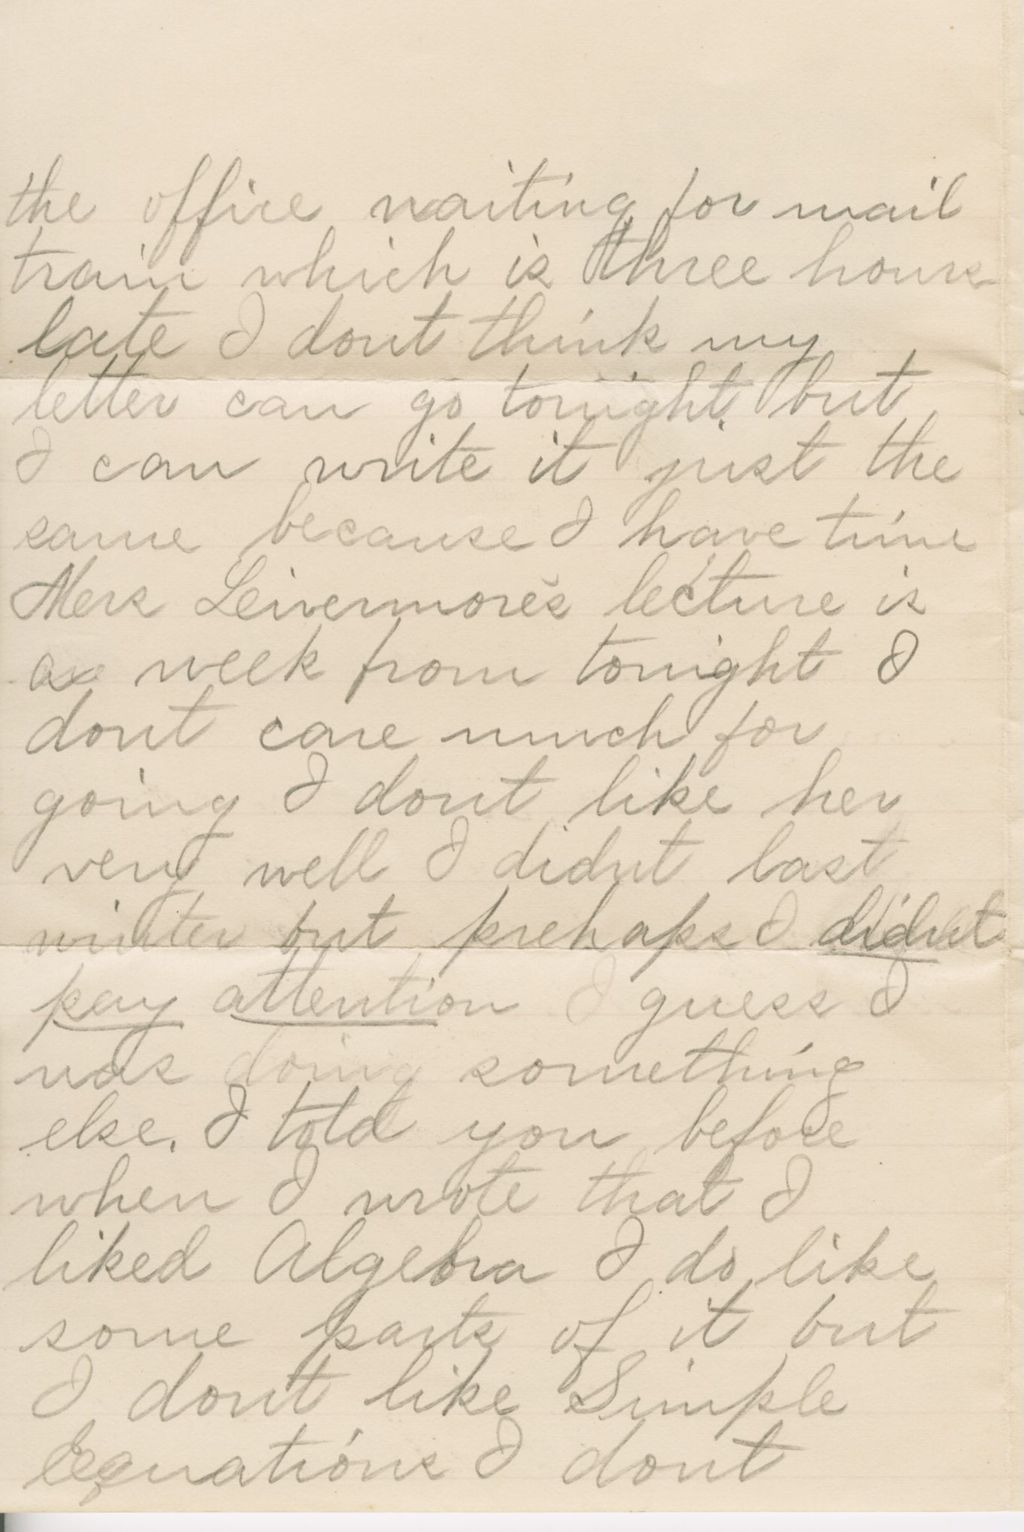 the office waiting for mail
train which is three hours
late I dont think my
letter can go tonight but
I can write it just the
same because I have time
Mers Leivermore's lecture is
a week from tonight I
dont care much for
going I dont like her
very well I didnt last
winter but prehaps I didnt
pay attention I guess I
was doing something
else. I told you before
when I wrote that I
liked Algebra I do like
some parts of it but
I dont like Simple
Equations I dont